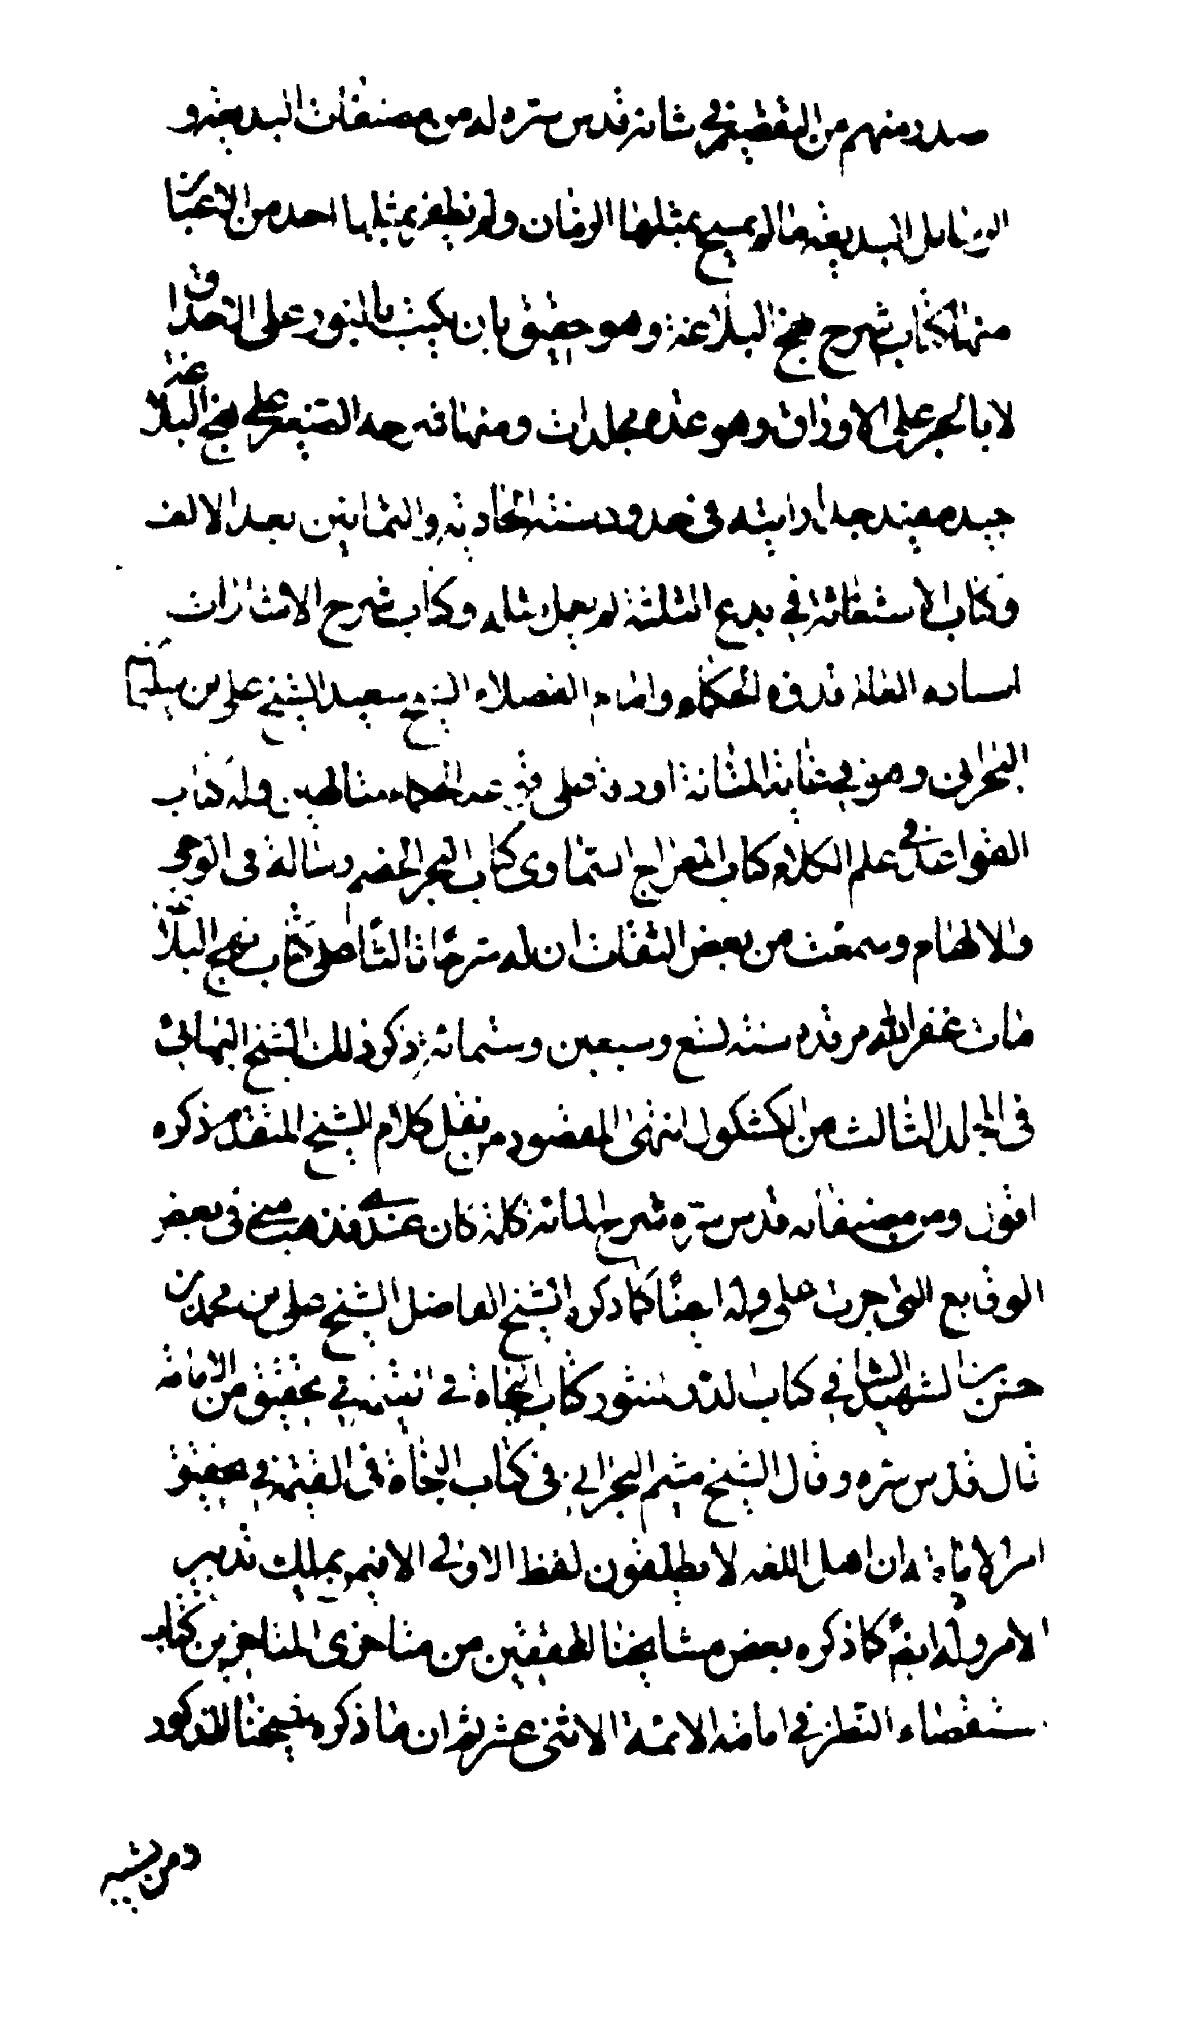 صدر منهم من التقصير في شانه قدس سره له من مصنفات البديعه و
الرسايل البديعه ما لم يسمح بمثلها الزمان ولم تظفر بمثلها احد من الاعيان
منها كتاب شرح نهج البلاغة وهو حقيق بان يكتب بالنور على الاحداق
لا بالحبر على الاوراق وهو عدة مجلدات ومنها شرحه الصغير على نهج البلاغة
جيد مفيد جدا رايته في حدود سنة الحادية والثمانين بعد الالف
وكتاب الاستغاثة في بدع الثلثة لم يعمل مثله وكتاب شرح الاشارات
استاده العالم قدوة الحكماء وامام الفضلاء الشيخ سعيد الشيخ علي بن سليمان
البحراني وهو في غاية المتانة اورد فعلى فيه عند الحكماء متالهين وله كتاب
القواعد في علم الكلام كتاب المعراج السماوي كتاب البحر الخضم رسالة في الوحي
والالهام وسمعت من بعض الثقات ان له شرحا ثالثا على كتاب نهج البلاغة
مات غفر الله مرقده سنة تسع وسبعين وستمائة ذكر ذلك الشيخ البهائي
في المجلد الثالث من الكشكول انتهى المقصود من نقل كلام الشيخ المتقدم ذكره
اقول ومن مصنفاته قدس سره شرح المائة كلمة كان عندي فذهب مني في بعض
الوقايع التي جرت علي وله ايضا كما ذكره الشيخ الفاضل الشيخ علي بن محمد بن
حسن بن الشهيد الثاني في كتاب الدر المنثور كتاب النجاة في القيمة في تحقيق امر الامامة
قال قدس سره وقال الشيخ ميثم البحراني في كتاب النجاة في القيمة في تحقيق
امر الامامة ان اهل اللغه لا يطلقون لفظ الاولى الا فيمن يملك تدبير
الامر وله ايضا كما ذكره بعض مشايخنا المحققين من متاخري المتاخرين كتاب
ستقصاء النظر في امامة الائمة الاثني عشر ثم ان ما ذكره شيخنا المذكور